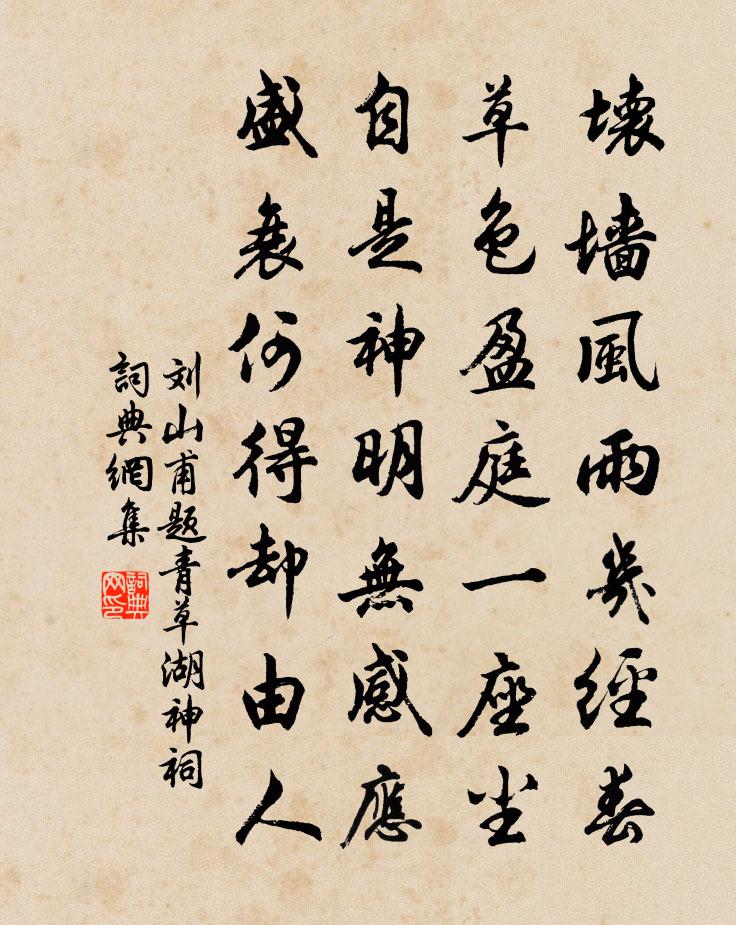 壞墻風雨幾經春
草色盈庭一座尘
自是神明無感應
盛衰何得却由人
刘山甫题青草湖神祠
詞典網集
詞典网印